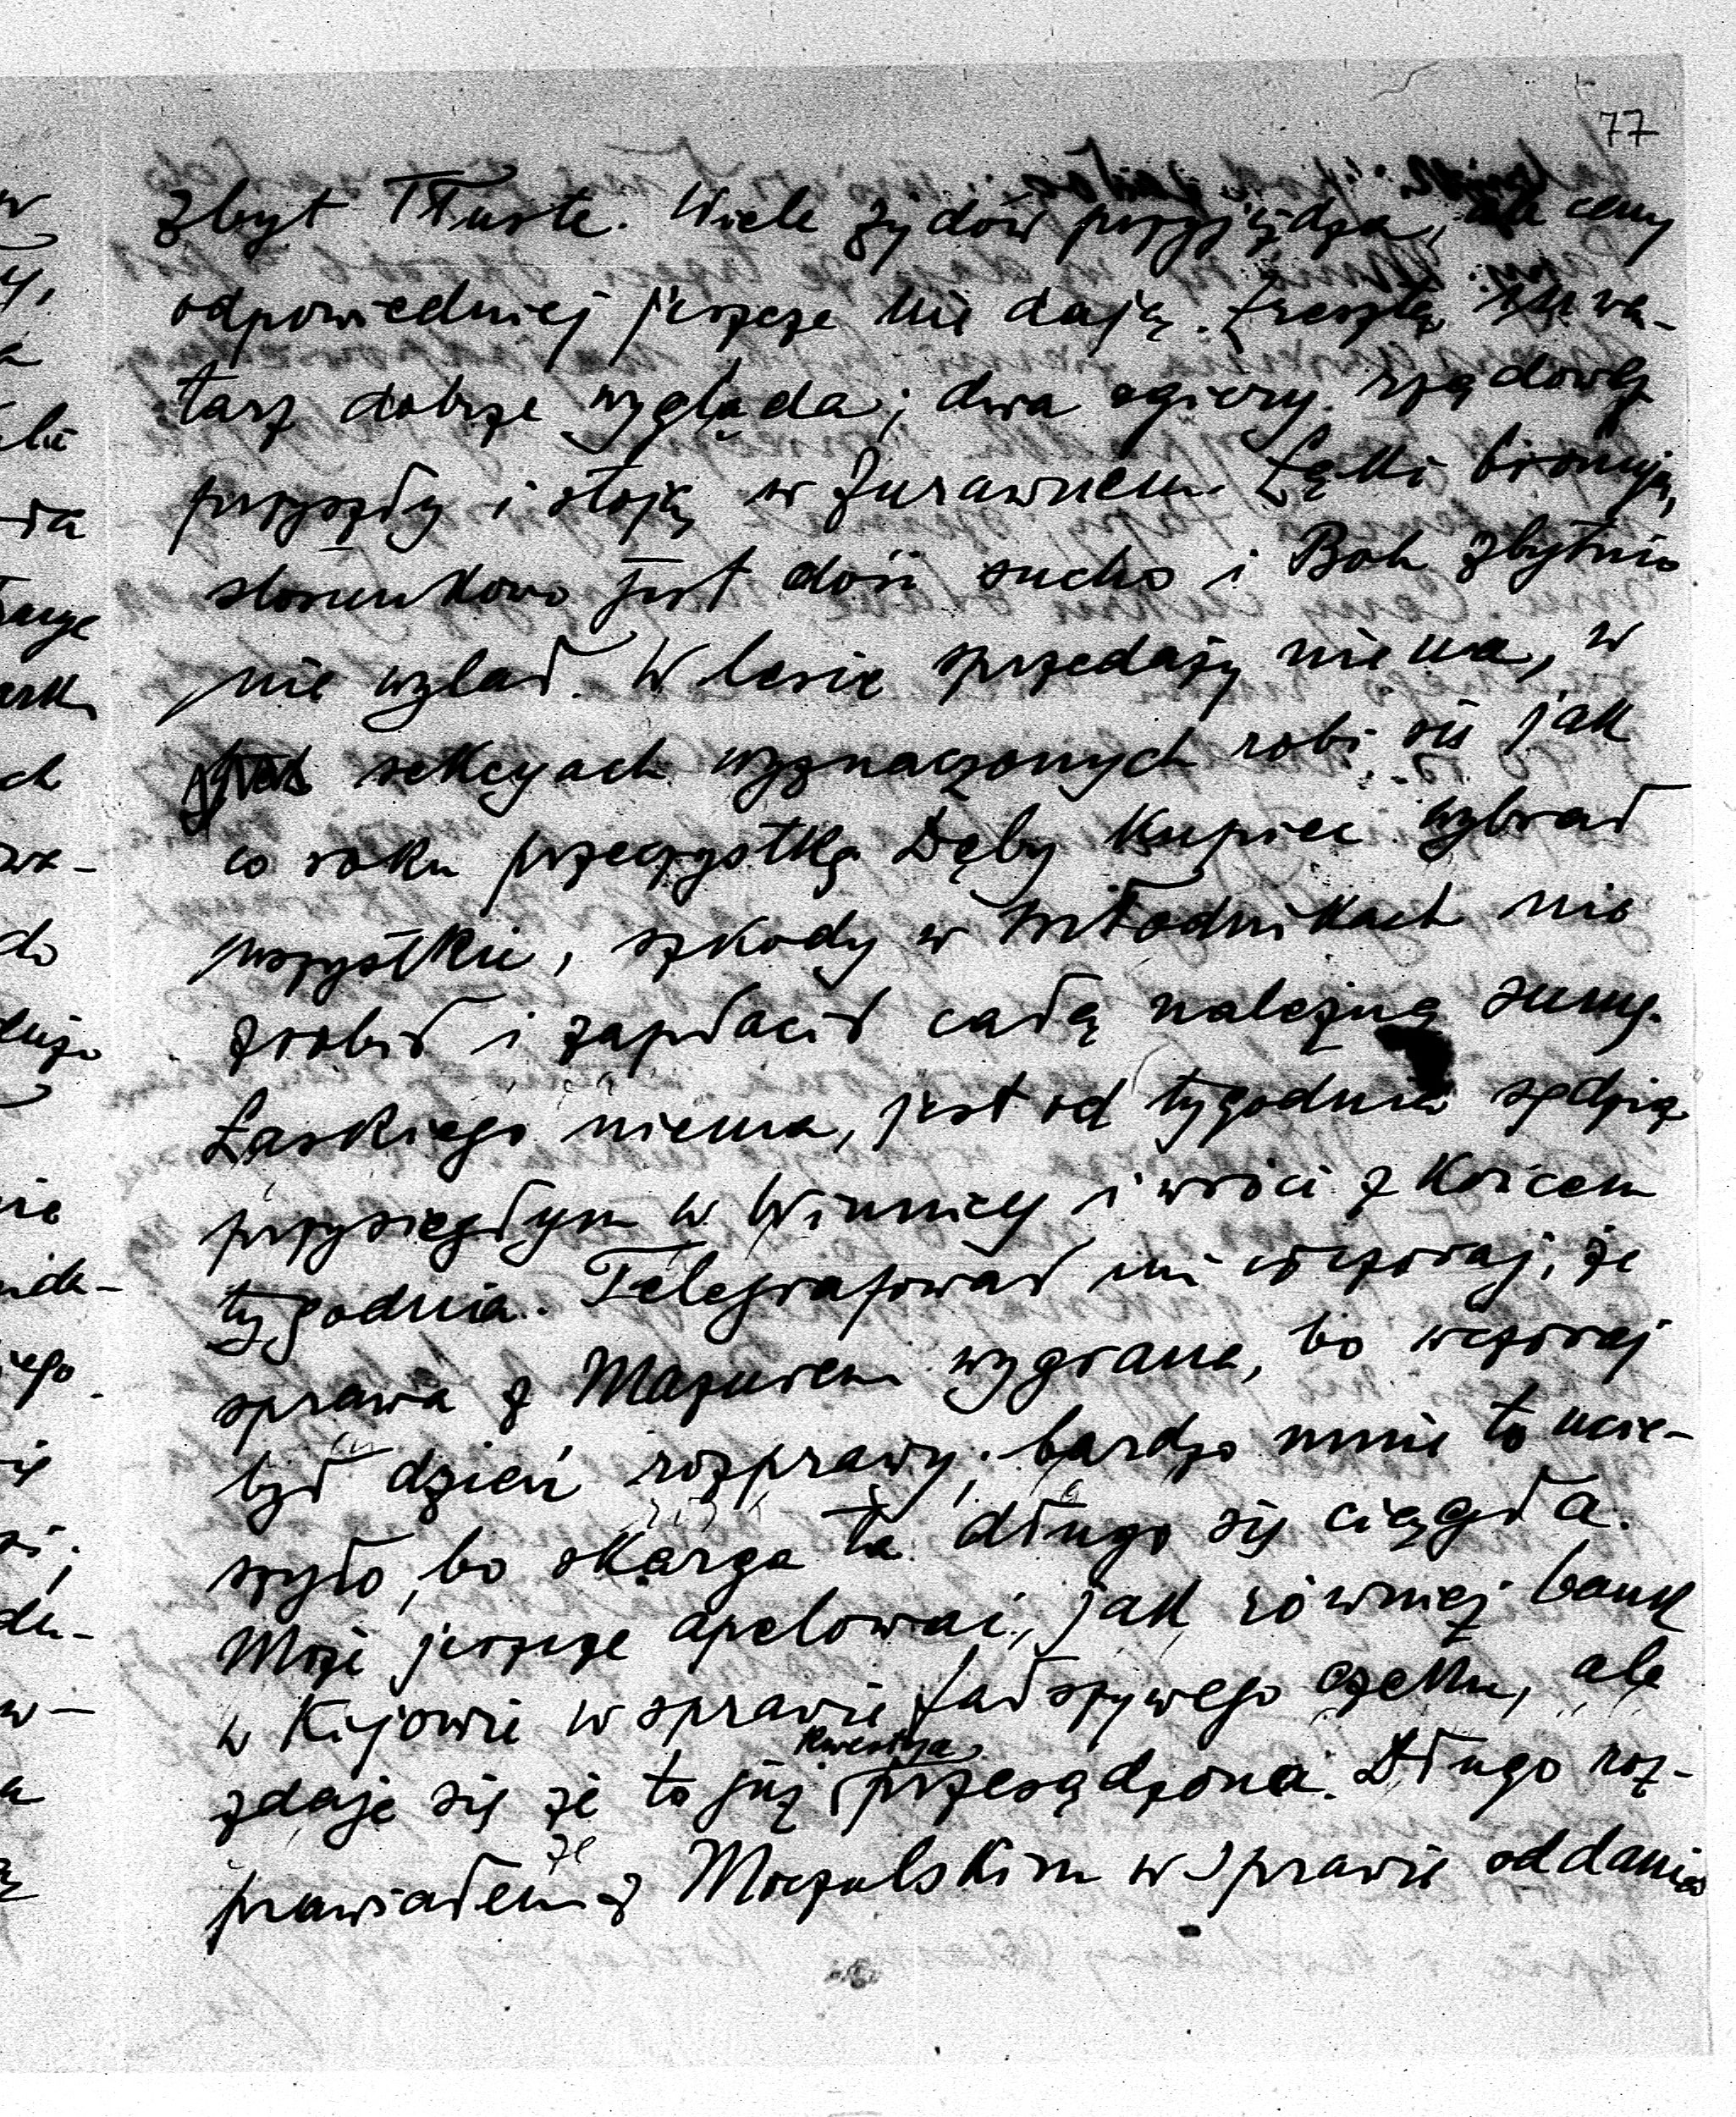 77
zbyt Tłuste. Wiele żydów przyjeżdża, ale ceny
odpowiedniej jeszcze nie dają. Zresztą inwen-
tarz dobrze wygląda; dwa ogiery rządowe
przyszły i stoją w Żurawnem. Łąki bronują,
stosunkowo jest dość sucho i Boh zbytnio
nie wylał. W lesie sprzedaży niema, w
sekcyach wyznaczonych robi się jak
co roku przeczystkę Dęby Kupiec wybrał
wszystkie, szkody w młodnikach nie
zrobił i zapłacił całą należną sumę.
Laskiego niema, jest od tygodnia sędzią
przysięgłym w Winnicy i wróci z końcem
tygodnia. Telegrafował mi wczoraj, że
sprawa z Mazurem wygrana, bo wczoraj
był dzień rozprawy; bardzo mnie to ucie-
szyło, bo skarga ta długo się ciągła.
Może jeszcze apelować, jak również bank
w Kijowie w sprawie fałszywego czeku, ale
zdaje się że to już kwestya przesądzona. Długo roz-
prawiałem z Moczulskim w sprawie oddania